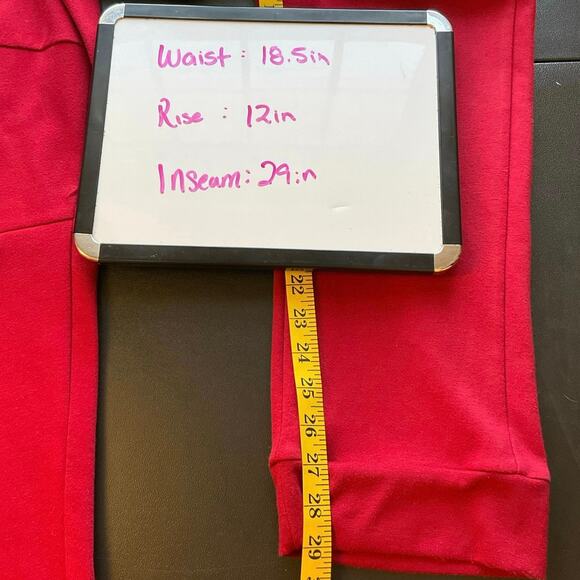 Waist: 18.5in
Rise : 12in
Inseam: 29in
22
23
24
25
26
27
28
29